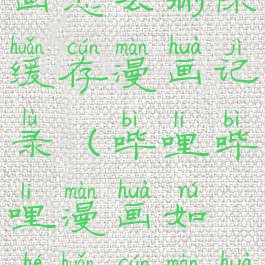 huǎn cún màn huà jì
缓存漫画记
lù bì li bì
录(哔哩哔
li màn huà rú
哩漫画如
hé huǎn cún màn huà